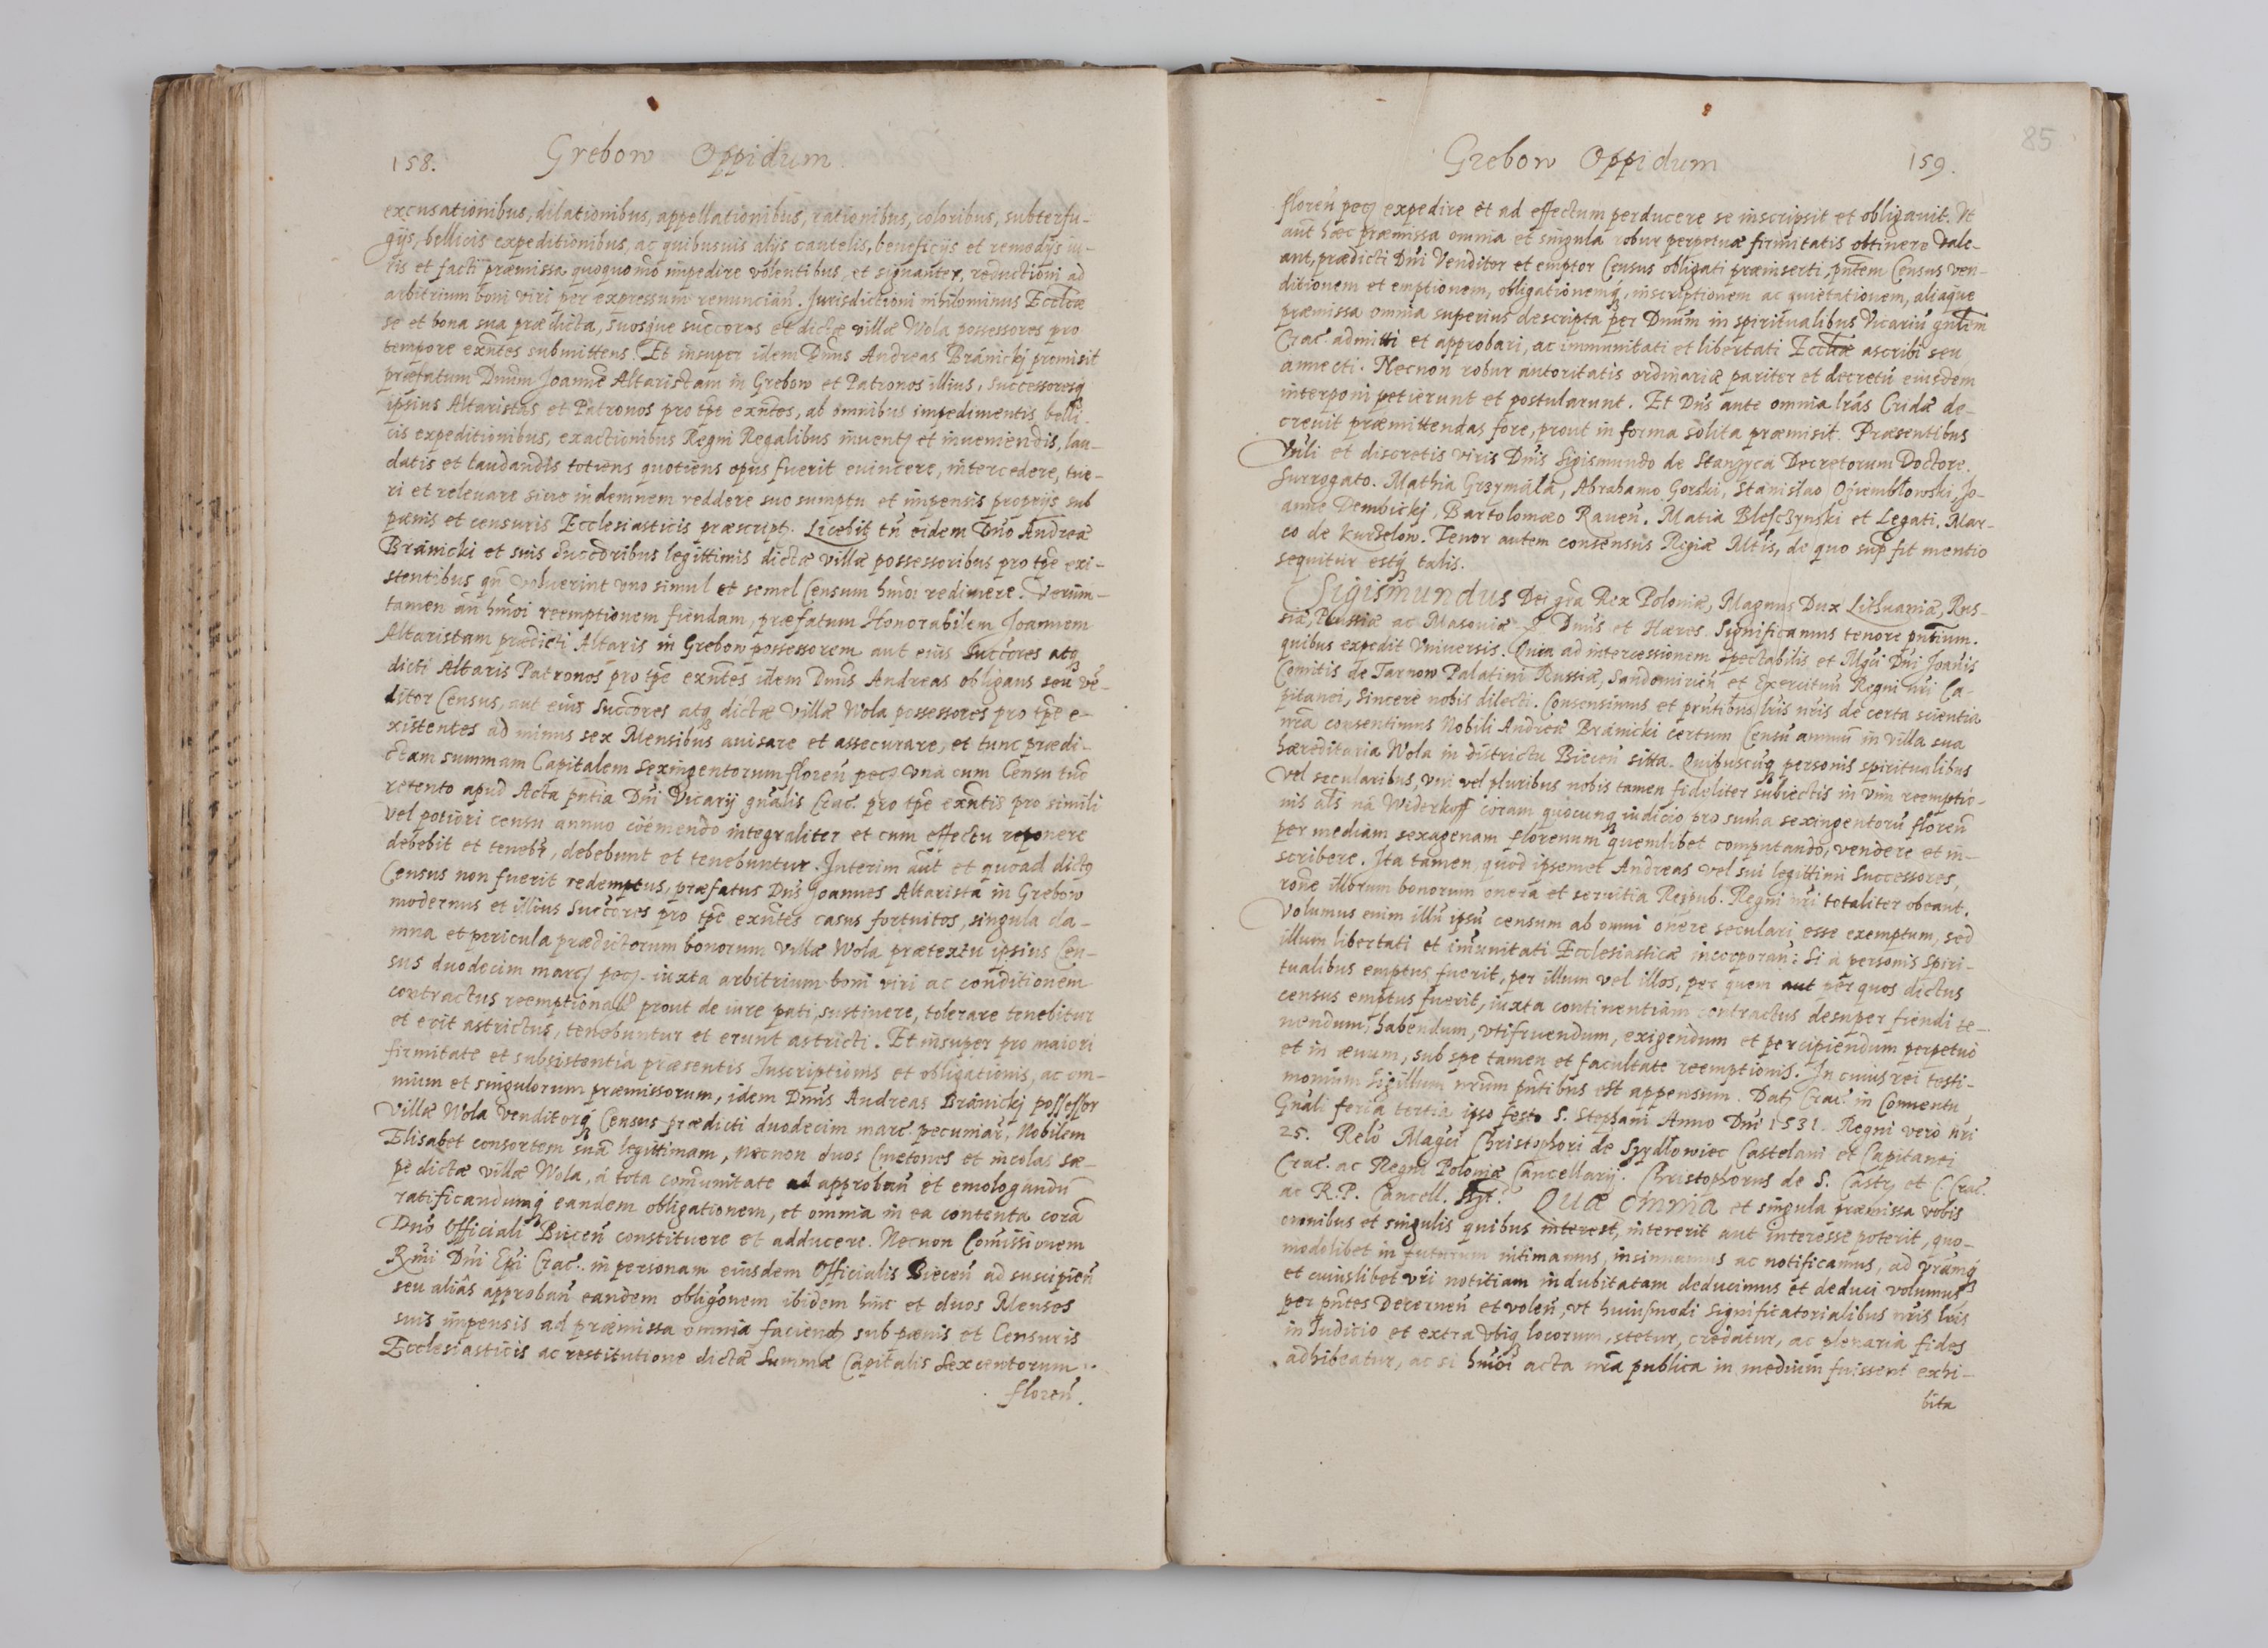 158.
Grebow Oppidum.
excusationibus, dilationibus, appellationibus, rationibus, coloribus, subterfu-
gijs, bellicis expeditionibus, ac quibusuis alijs cautelis, beneficijs et remedijs iu-
ris et facti præmissa quoquomo impedire volentibus, et signanter, reductioni ad
arbitrium boni viri per expressum renuncian̄. Jurisdictioni nihilominus Eccl̄cæ
se et bona sua prædicta, suosque succores et dictæ villæ Wola possessores pro
tempore exn̄tes submittens. Et insuper idem Dn̄us Andreas Bránickj promisit
præfatum Dnūm Joannē Altaristam in Grebow et Patronos illius, successoresq́
ipsius Altaristas et Patronos pro tp̄e exn̄tes, ab omnibus impedimentis, belli-
cis expeditionibus, exactionibus Regni Regalibus inuentʒ et inueniendis, lau-
datis et laudandis totiens quotiens opus fuerit euincere, intercedere, tue-
ri et releuare siue indemnem reddere suo sumptu et impensis proprijs sub
pœnis et censuris Ecclesiasticis præscript. Licebit tn̄ eidem Dn̄o Andreæ
Bránicki et suis succoribus legittimis dictæ villæ possessoribus pro tp̄e exi-
stentibus qn̄ voluerint vno simul et semel Censum hmōi redimere. Verum-
tamen an̄ hmōi reemptionem fiendam, præfatum Honorabilem Joannem
Altaristam prædicti Altaris in Grebow possessorem aut eius succores atq
dicti Altaris Patronos pro tp̄e exn̄tes idem Dn̄us Andreas obligans seu vē-
ditor Census, aut eius succores atq dictæ villæ Wola possessores pro tp̄e e-
xistentes ad minus sex Mensibus auisare et assecurare, et tunc prædi-
ctam summam Capitalem sexingentorum floren̄ pecʒ vna cum Censu tūc
retento apud Acta pn̄tia Dn̄i Vicarij gnālis Crac. pro tp̄e exn̄tis pro simili
vel potiori censu annuo coëmendo integraliter et cum effectu reponere
debebit et tenebr, debebunt et tenebuntur. Interim aūt et quoad dicto
Census non fuerit redemptus, præfatus Dn̄s Joannes Altarista in Grebow
modernus et illius succores pro tp̄e exn̄tes casus fortuitos, singula da-
mna et pericula prædictorum bonorum villæ Wola prætextu ipsius Cen-
sus duodecim marcʒ pecʒ. iuxta arbitrium boni viri ac conditionem
contractus reemptionalis prout de iure pati, sustinere, tolerare tenebitur
et erit astrictus, tenebuntur et erunt astricti. Et insuper pro maiori
firmitate et subsistentia præsentis Inscriptionis et obligationis, ac om-
nium et singulorum præmissorum, idem Dn̄us Andreas Bránickj possessor
villæ Wola venditorq́ Census prædicti duodecim marc pecuniar, Nobilem
Elisabet consortem suā legittimam, necnon duos Cmetones et incolas sæ-
pe dictæ villæ Wola, á tota comunitate ad approban̄ et emologandū
ratificandumq́ eandem obligationem, et omnia in ea contenta corā
Dn̄o Officiali Biecen̄ constituere et adducere. Necnon Comissionem
Rm̄i Dn̄i Ep̄i Crac. in personam eiusdem Officialis Biecen̄ ad suscipien̄
seu aliâs approban̄ eandem obligōnem ibidem hinc et duos Menses
suis impensis ad præmissa omnia faciend sub pœnis et Censuris
Ecclesiasticis ac restitutione dictæ summæ Capitalis sexcentorum
floren̄.
85
Grebow Oppidum
159.
floren̄ pecʒ expedire et ad effectum perducere se inscripsit et obligauit. Vt
aūt hæc præmissa omnia et singula robur perpetuæ firmitatis obtinere vale-
ant, prædicti Dn̄i Venditor et emptor Census obligati præinserti, pn̄tem Census ven-
ditionem et emptionem, obligationemq́, inscriptionem ac quietationem, aliaque
præmissa omnia superius descripta per Dnūm in spiritualibus Vicariū gnlem
Crac. admitti et approbari, ac immunitati et libertati Eccl̄cæ ascribi seu
annecti. Necnon robur autoritatis ordinariæ pariter et decretū eiusdem
interponi petierunt et postularunt. Et Dn̄s ante omnia lrās Cridæ de-
creuit præmittendas fore, prout in forma solita præmisit. Præsentibus
Vn̄li et discretis viris Dn̄is Sigismundo de Stanzyca Decretorum Doctore.
Surrogato. Mathia Grzymála, Abrahamo Gorski, Stanislao Ozremblowski, Jo-
anne Dembickj, Bartolomæo Rauen̄. Matia Blesczynski et Legati. Mar-
co de Kurzelow. Tenor autem consensus Rigiæ Mt̄is, de quo sup̄ fit mentio
sequitur estq́ talis.
Sigismundus Dei grā Rex Poloniæ, Magnus Dux Lithuaniæ, Rus-
siæ, Prussiæ ac Masouiæ Dn̄us et Hæres. Significamus tenore pn̄tium.
quibus expedit Vniuersis. Quia ad intercessionem spectabilis et Mgci Dn̄i Joānis
Comitis de Tarnow Palatini Russiæ, Sandomirien̄ et Exercituū Regni nr̄i Ca-
pitanei, sincerè nobis dilecti. Consensimus et pn̄tibus lrīs nrīs de certa scientia
nrā consentimus Nobili Andreæ Bránicki certum Censū annuū in villa sua
hæreditaria Wola in districtu Biecen̄ sitta. Quibuscūq personis spiritualibus
vel secularibus, vni vel pluribus nobis tamen fideliter subiectis in vim reemptio-
nis als̄ ná Widerkoff coram quocunq iudicio pro suma sexingentorū floren̄
per mediam sexagenam florenum quemlibet computando, vendere et in-
scribere. Ita tamen, quod ipsemet Andreas vel sui legittimi Successores,
rōne illorum bonorum onera et seruitia Reipub. Regni nr̄i totaliter obeant.
Volumus enim illū ipsū censum ab omni onere seculari esse exemptum, sed
illum libertati et imunitati Ecclesiasticæ incorporan̄: Si á personis Spiri-
tualibus emptus fuerit, per illum vel illos, per quem aut per quos dictus
census emptus fuerit, iuxta continentiam contractus desuper fiendi te-
nendum, habendum, vtifruendum, exigendum et percipiendum perpetuó
et in æuum, sub spe tamen et facultate reemptionis. In cuius rei testi-
monium Sigillum nrum pn̄tibus est appensum. Datʒ Crac. in Conuentu
Gnāli feria tertia ipso festo S. Stephani Anno Dn̄i 1531. Regni verò nr̄i
25. Relō Magci Christophori de Szydlowiec Castelani et Capitanei
Crac. ac Regni Poloniæ Cancellarij. Christophorus de S. Castʒ et C. Crac.
ac R.P. Cancell. sspt. Quæ omnia et singula præmissa vobis
omnibus et singulis quibus interest, intererit aut interesse poterit, quo-
modolibet in futurum intimamus, insinuamus ac notificamus, ad vramq́
et cuiuslibet vr̄i notitiam indubitatam deducimus et deduci volumus
per pn̄tes Decernen̄ et volen̄, vt huiusmodi significatorialibus nrīs lrīs
in Iudicio et extra vbiq locorum, stetur, credatur, ac plenaria fides
adhibeatur, ac si hmōi acta nrā publica in medium fuissent exhi-
bita